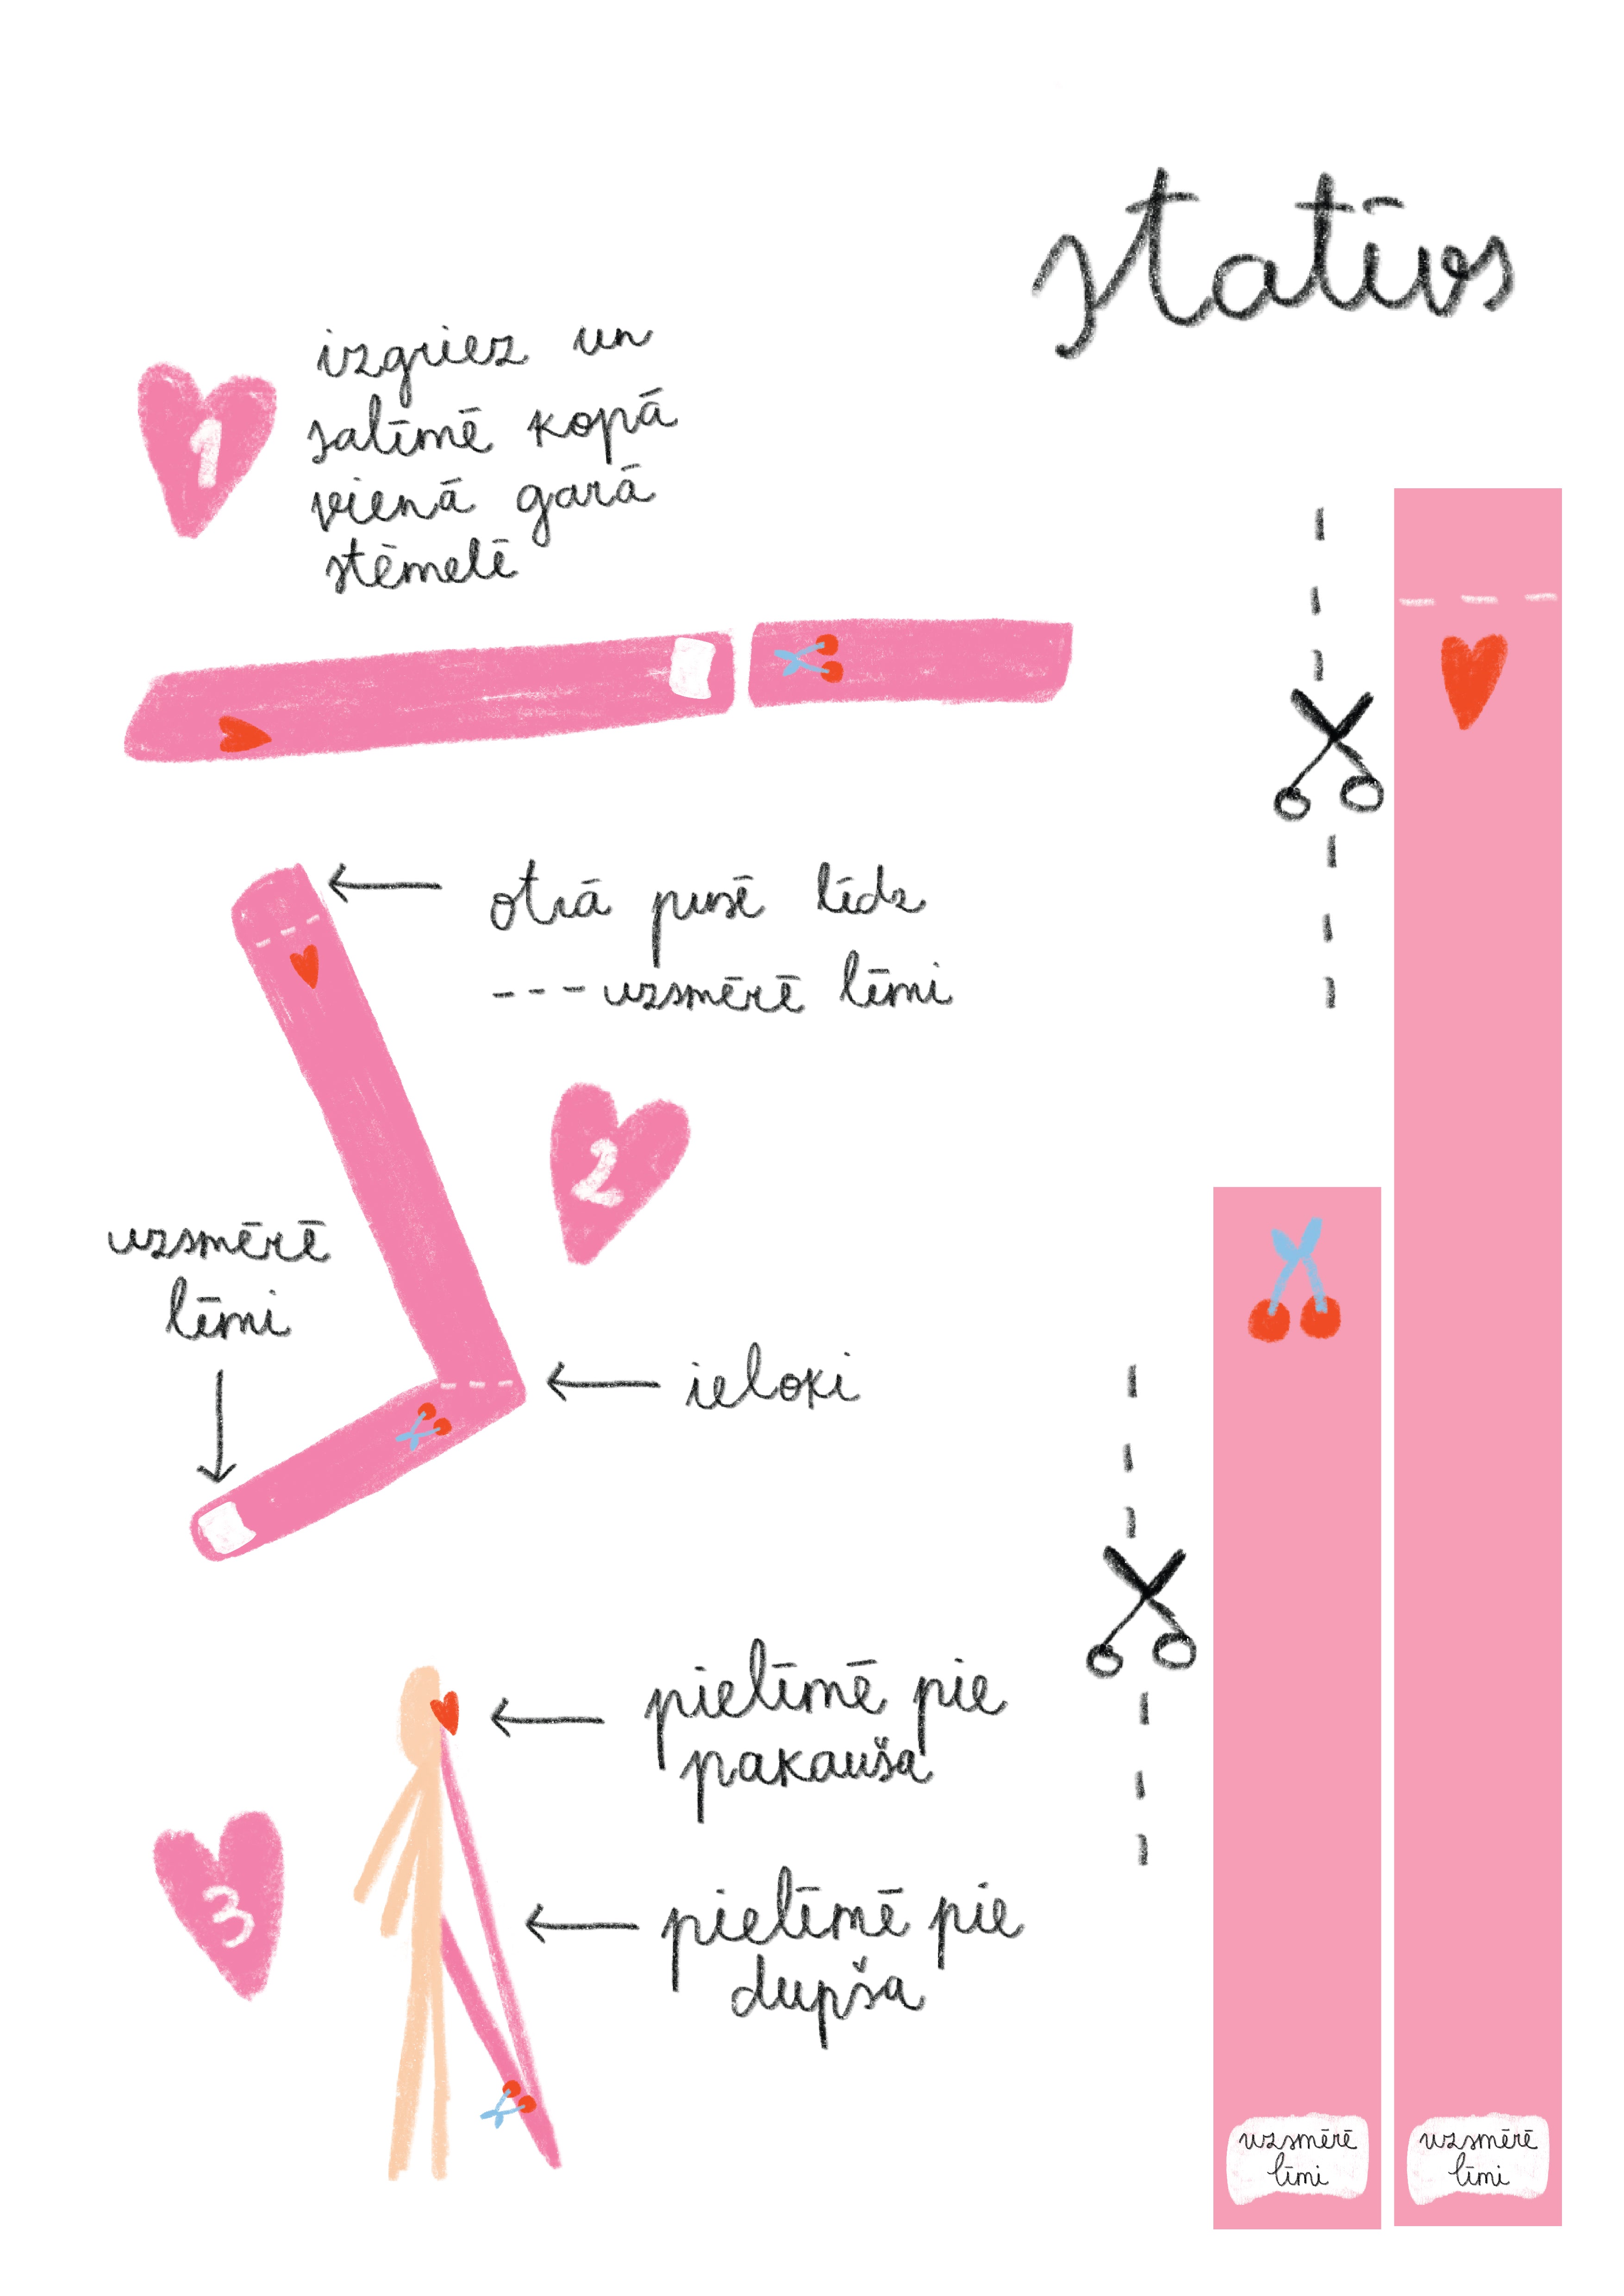 statīvs
1
izgriez un
salīmē kopā
vienā garā
stēmelē
otrā pusē līdz
---uzsmērē līmi
2
uzsmērē
līmi
ieloki
pielīmē pie
pakauša
3
pielīmē pie
dupša
uzsmērē
līmi
uzsmērē
līmi